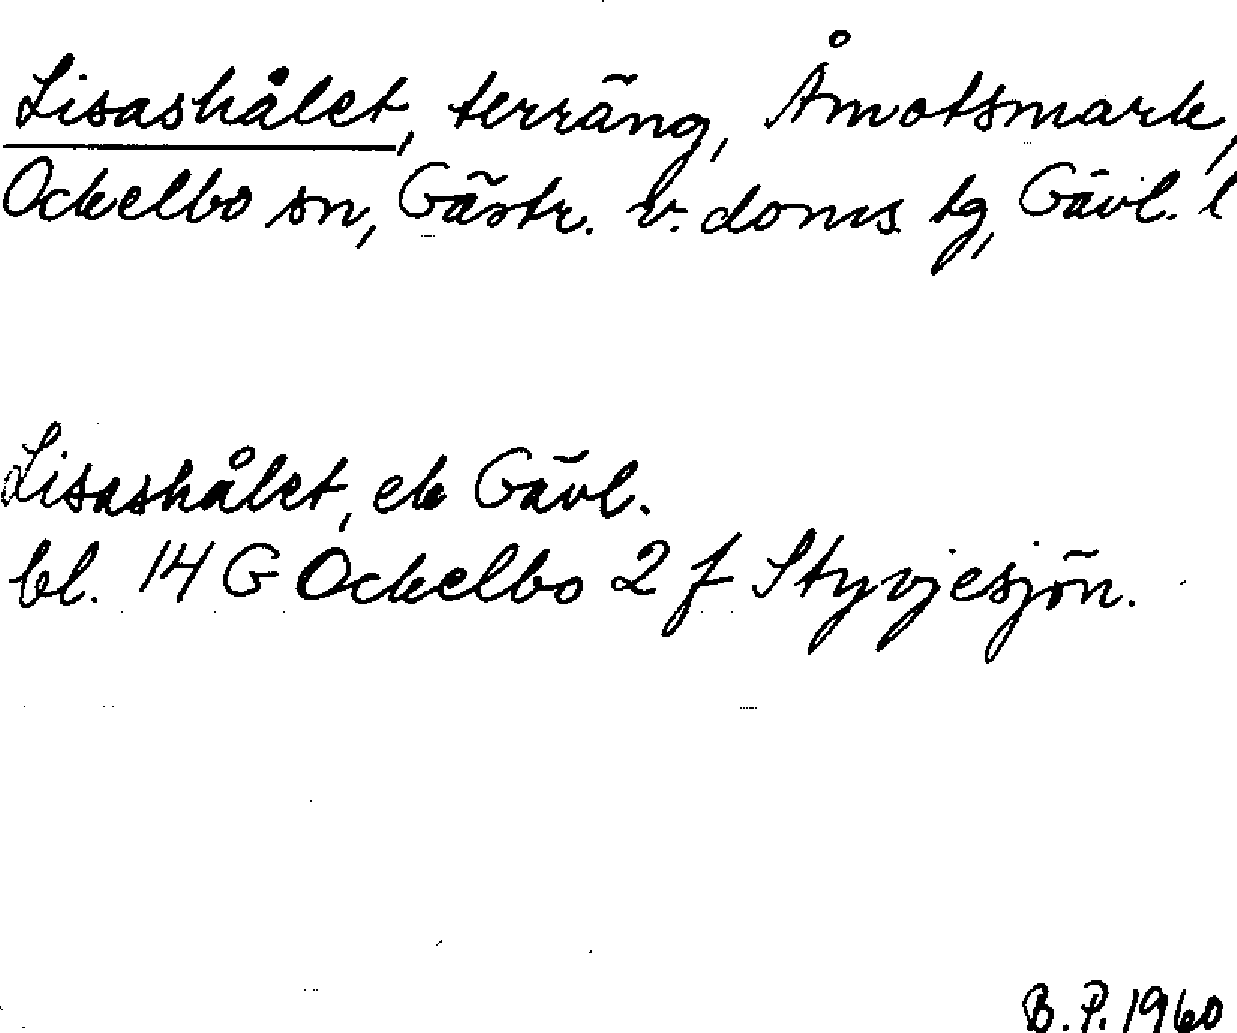 Lisashålet, terräng, Åmotsmark,
Ockelbo sn, Gästr. v. doms. tg, Gävl. l
Lisashålet, ek Gävl.
bl. 14 G Ockelbo 2 f Styvjesjön.
B.P. 1960